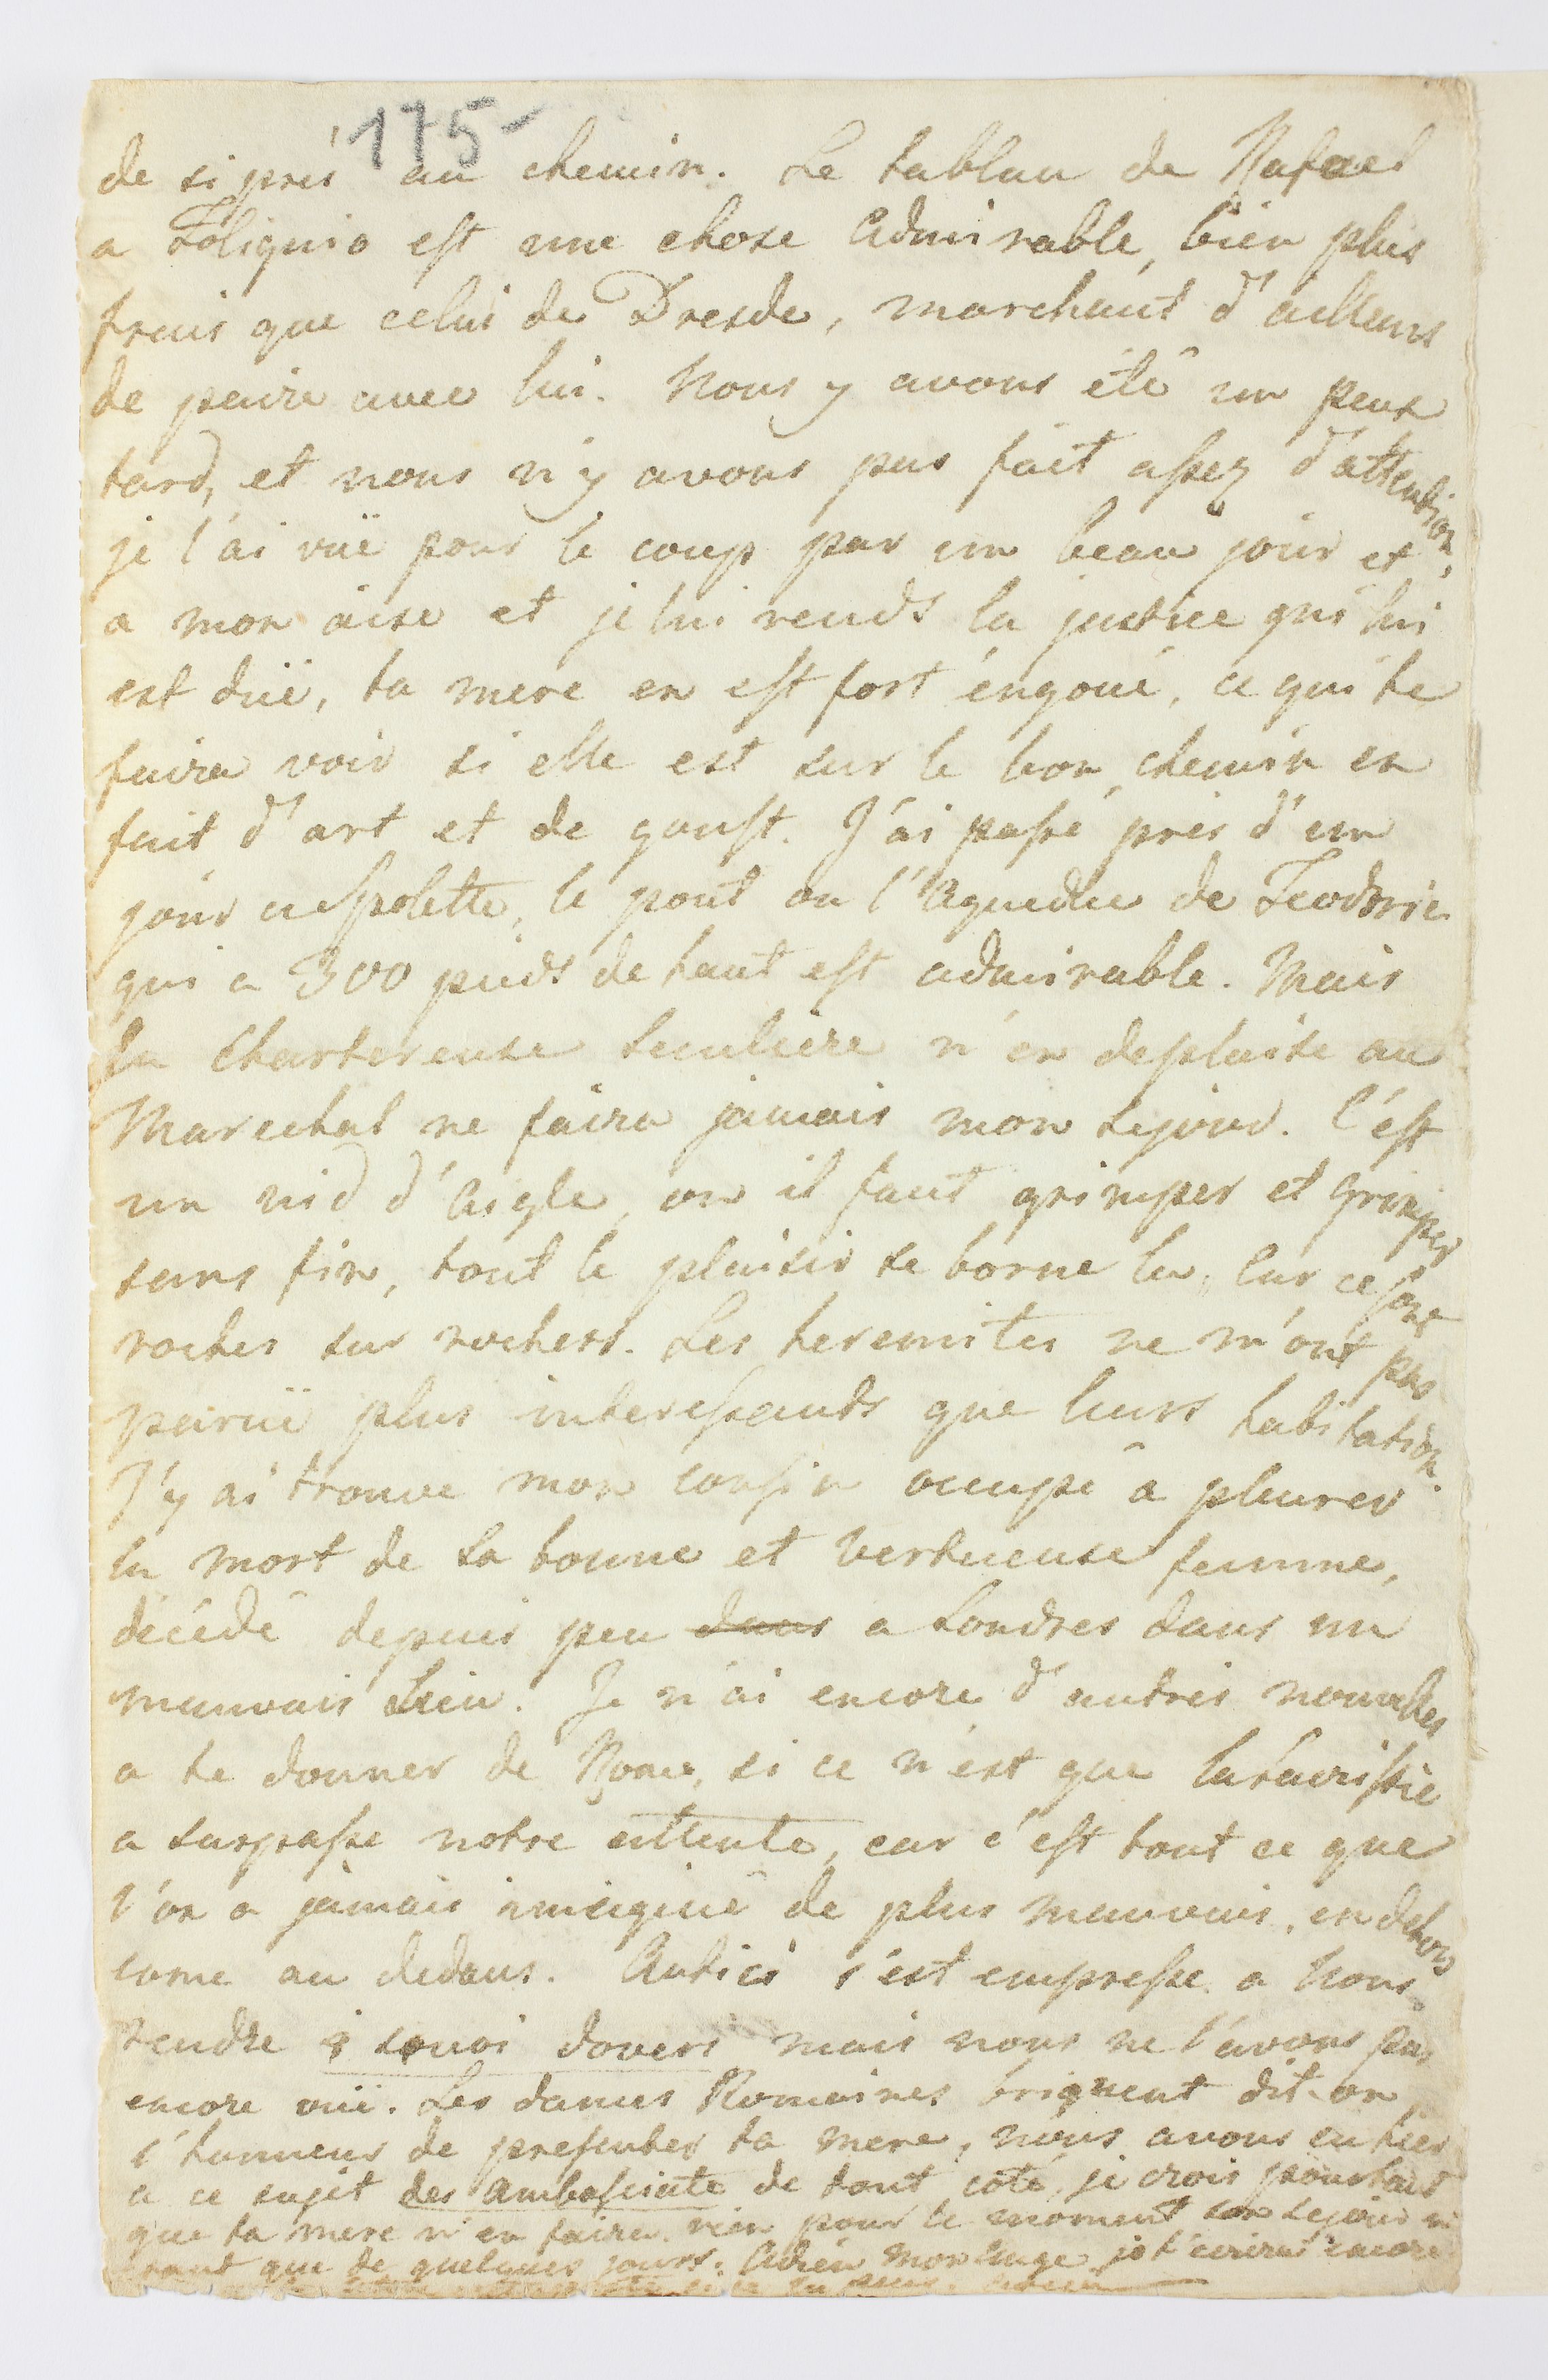 175-
de si prés au chemin. Le tablau de Rafael
a Foliguio est une chose admirable, bien plus
frais que celui de Dresde, marchant d'ailleurs
de paire avec lui. Nous y avons été un peux
tard, et nous n'y avons pas fait assez d'attention,
je l'ai vuë pour le coup par un beau jour et
a mon aise et je lui rends la justice qui lui
est duë, ta mere en est fort éngoué, ce qui te
faira voir si elle est sur le bon chemin en
fait d'art et de goust. J'ai passé prés d'un
jour a Spolette, le pont ou l'aqueduc de Teodoric
qui a 300 pieds de haut est admirable. Mais
la Chartereuse seculiere n'en deplaise au
Marechal ne faira jamais mon sejour. C'est
un nid d'aigle, ou il faut grimper et grimper
sans fin, tout le plaisir se borne la, car ce sont
roches sur rochers. Les heremites ne m'ont pas
paruë plus interessants que leurs habitation.
J'y ai trouve mon cousin occupé a pleurer
la mort de sa bonne et vertueuse femme,
décédé depuis peu dans a Londres dans un
mauvais Lieu. Je n'ai encore d'autres nouvelles
a te donner de Rome, si ce n'est que la sacristie
a surpasse notre attente, car c'est tout ce que
l'on a jamais imaginé de plus mauvais, en dehors
come au dedans. Antici s'est empresse a nous
rendre i suoi doveri mais nous ne l'avons pas
encore vuë. Les dames Romaines briguent dit-on
l'honneur de presenter ta mere, nous avons eu hier
a ce sujet des ambasciate de tout coté, je crois pourtant
que ta mere n'en faira rien pour le moment son sejour n'
etant que de quelques jours. Adieu mon ange je t'ecrirai encore